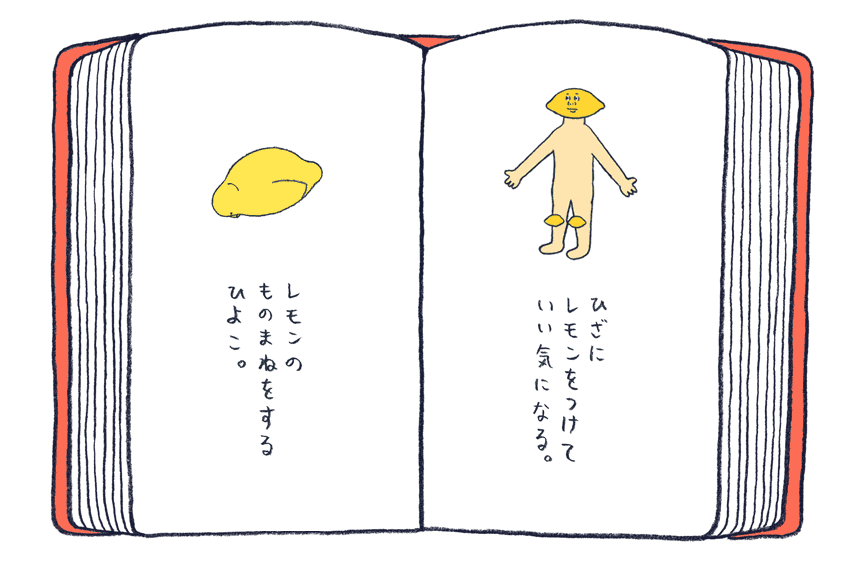 ひざに
レモンをつけて
いい気になる。
レモンの
ものまねをする
ひよこ。